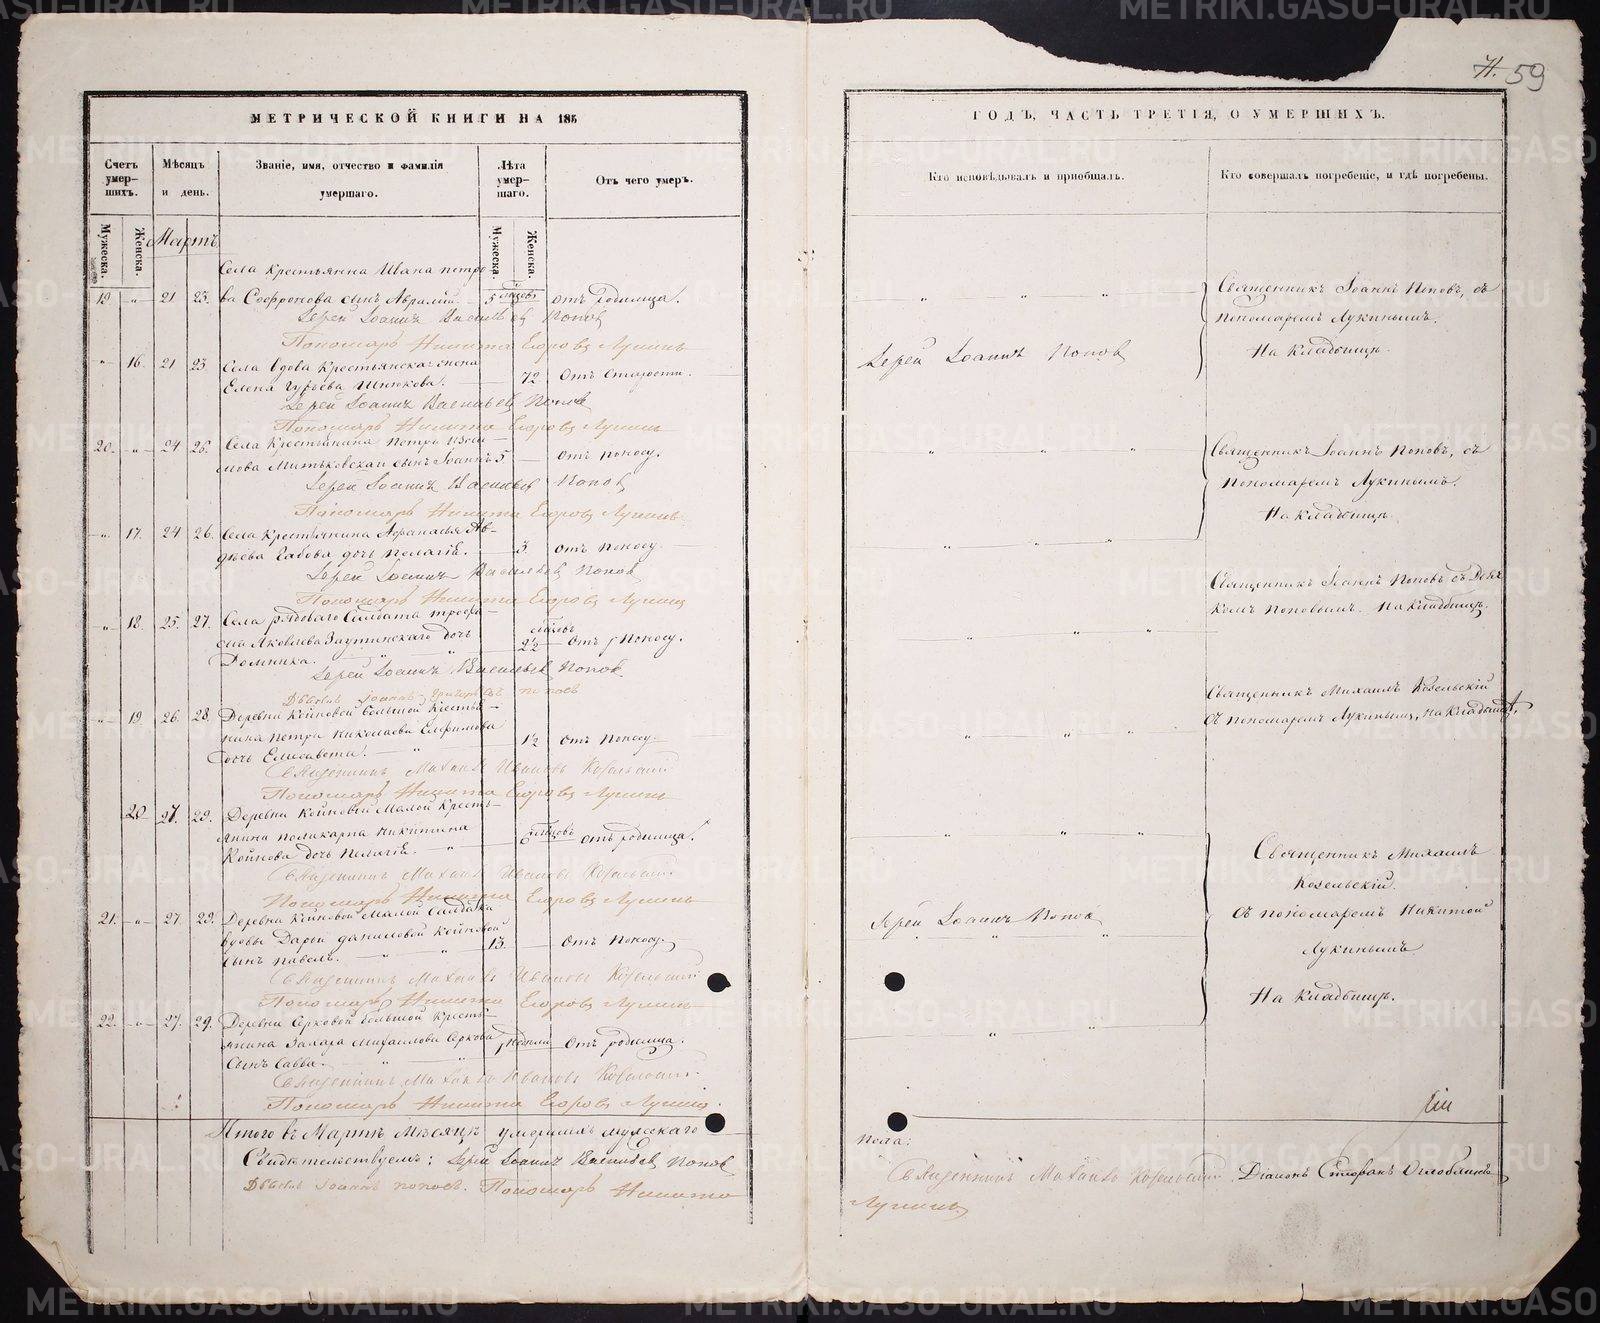 59
МЕТРИЧЕСКОЙ КНИГИ НА 185
ГОДЪ, ЧАСТЬ ТРЕТІЯ, О УМЕРШИХЪ.
Счетъ умер-шихъ.
Мѣсяцъ и день.
Званіе, имя, отчество и фамилія умершаго.
Лѣта умер-шаго.
Отъ чего умеръ.
Кто исповѣдывалъ и пріобщалъ.
Кто совершалъ погребеніе, и гдѣ погребены.
Мужеска.
Женска.
Мартъ
Мужеска.
Женска.
Села Крестьянина Ивана петро
19 " 21 23. ва Софронова сынъ 5 отъ родимца.
Іерей Іоаннъ Васильевъ Поповъ
Пономарь Никита Егоровъ Лукинъ
Священникъ Іоаннъ Поповъ, съ
пономаремъ Лукинымъ.
На кладбищѣ.
" 16. 21 23 Села вдова Крестьянская жена
Елена Гурьева 72 Отъ старости.
Іерей Іоаннъ Васильевъ Поповъ
Пономарь Никита Егоровъ Лукинъ
Іерей Іоаннъ Поповъ
20. " 24 26. Села Крестьянина Петра
сынъ Іоаннъ 5 — отъ поносу.
Іерей Іоаннъ Васильевъ Поповъ
Пономарь Никита Егоровъ Лукинъ
Священникъ Іоаннъ Поповъ, съ
пономаремъ Лукинымъ.
На кладбищѣ.
" 17. 24 26. Села Крестьянина Афанасья Ав-
дѣева дочь Пелагія. 3. отъ поносу.
Іерей Іоаннъ Васильевъ Поповъ
Пономарь Никита Егоровъ Лукинъ
" 18. 25. 27. Села рядоваго Солдата трофи-
Яковлева дочь
Домника. 2½ Отъ Поносу.
Іерей Іоаннъ Васильевъ Поповъ
Дьячекъ Іоаннъ Григорьевъ поповъ
Священникъ Іоаннъ Поповъ съ Дьяч
комъ Поповымъ. На кладбищѣ.
" 19 26. 28. Деревни Койновой большой Крестья-
нина Петра Николаева Елфимова
дочь Елисавета. 1½ Отъ Поносу.
Священникъ Михаилъ Ивановъ Козельскій
Пономарь Никита Егоровъ Лукинъ
Священникъ Михаилъ Козельскій
съ пономаремъ Лукинымъ, на кладбищѣ.
20 27. 29. Деревни Койновой Малой Кресть-
янина поликарпа Никитина
Койнова дочь Пелагія. 6 отъ родимца.
Священникъ Михаилъ Ивановъ Козельскій
Пономарь Никита Егоровъ Лукинъ
Священникъ Михаилъ
Козельскій.
съ пономаремъ Никитой
Лукинымъ
На кладбищѣ.
21. " 27. 29. Деревни Койновой Малой Солдатка
вдовы Дарьи даниловой Койновой
сынъ павелъ. 15. Отъ Поносу.
Священникъ Михаилъ Ивановъ Козельскій
Пономарь Никита Егоровъ Лукинъ
Іерей Іоаннъ Поповъ
22. " 27. 29. Деревни Серковой большой Кресть-
янина Захара Михайлова Серкова
Сынъ Савва. 1 недѣли Отъ родимца.
Священникъ Михаилъ Ивановъ Козельскій
Пономарь Никита Егоровъ Лукинъ.
Итого въ Мартѣ Мѣсяцѣ умершихъ мужескаго
пола:
Свидѣтельствуемъ: Іерей Іоаннъ Васильевъ Поповъ
Священникъ Михаилъ Козельскій Діаконъ Стефанъ Оглоблинъ
Дьячекъ Іоаннъ поповъ. Пономарь Никита
Лукинъ
METRIKI.GASO-URAL.RU